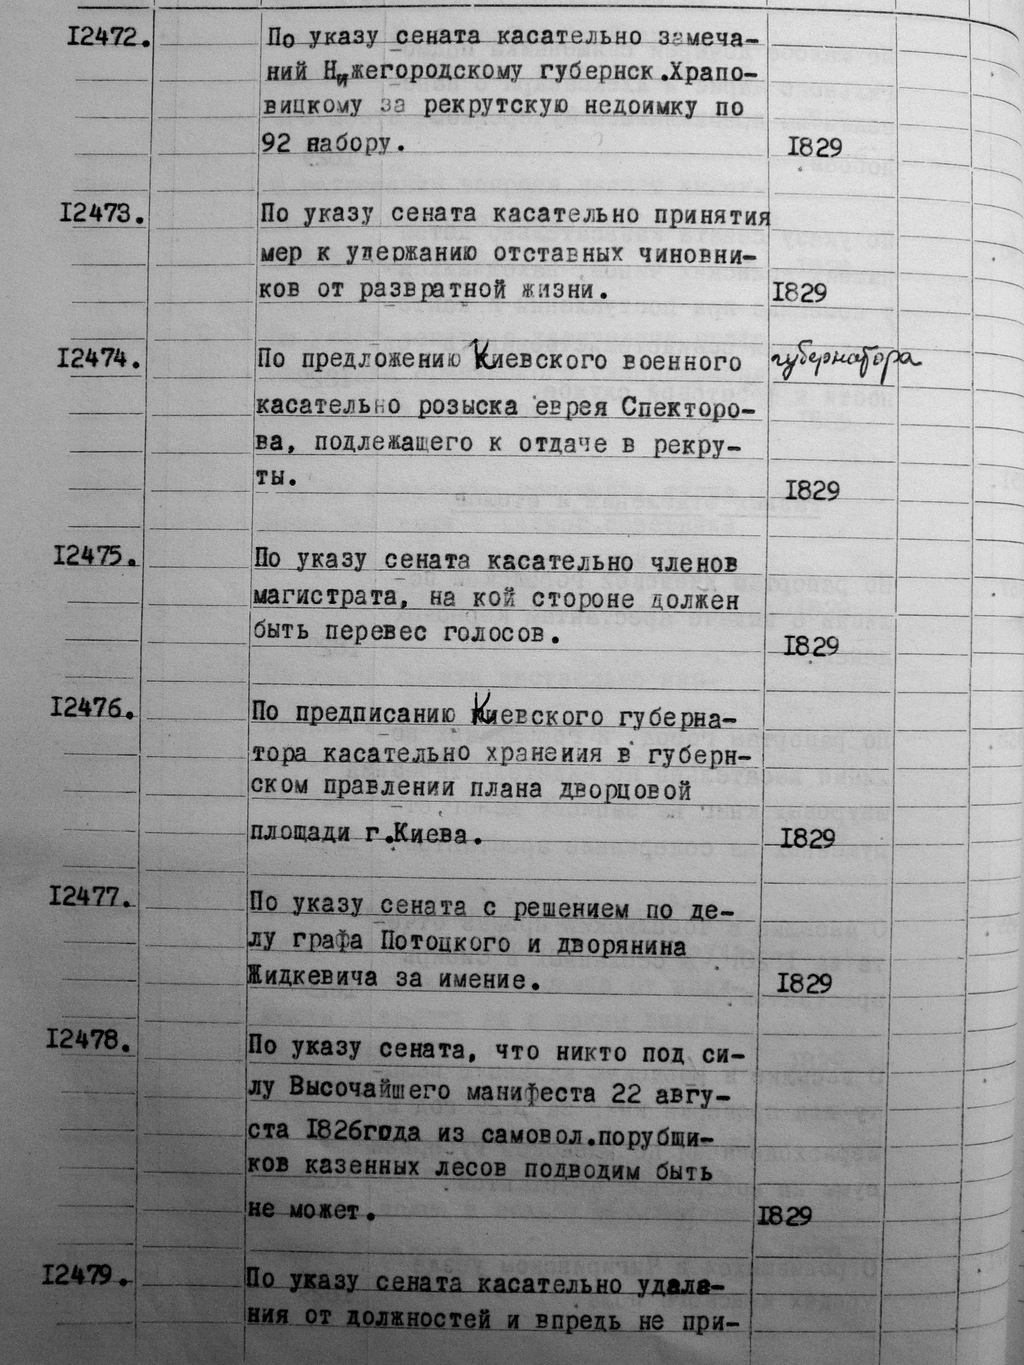 12472. По указу сената касательно замеча-
ний Нижегородскому губернск.Храпо-
вицкому за рекрутскую недоимку по
92 набору. 1829
12473. По указу сената касательно принятия
мер к удержанию отставных чиновни-
ков от развратной жизни. 1829
12474. По предложению Киевского военного губернатора
касательно розыска еврея Спекторо-
ва, подлежащего к отдаче в рекру-
ты. 1829
12475. По указу сената касательно членов
магистрата, на кой стороне должен
быть перевес голосов. 1829
12476. По предписанию Киевского губерна-
тора касательно хранения в губерн-
ском правлении плана дворцовой
площади г.Киева. 1829
12477. По указу сената с решением по де-
лу графа Потоцкого и дворянина
Жидкевича за имение. 1829
12478. По указу сената, что никто под си-
лу Высочайшего манифеста 22 авгу-
ста 1826года из самовол.порубщи-
ков казенных лесов подводим быть
не может. 1829
12479. По указу сената касательно удала-
ния от должностей и впредь не при-